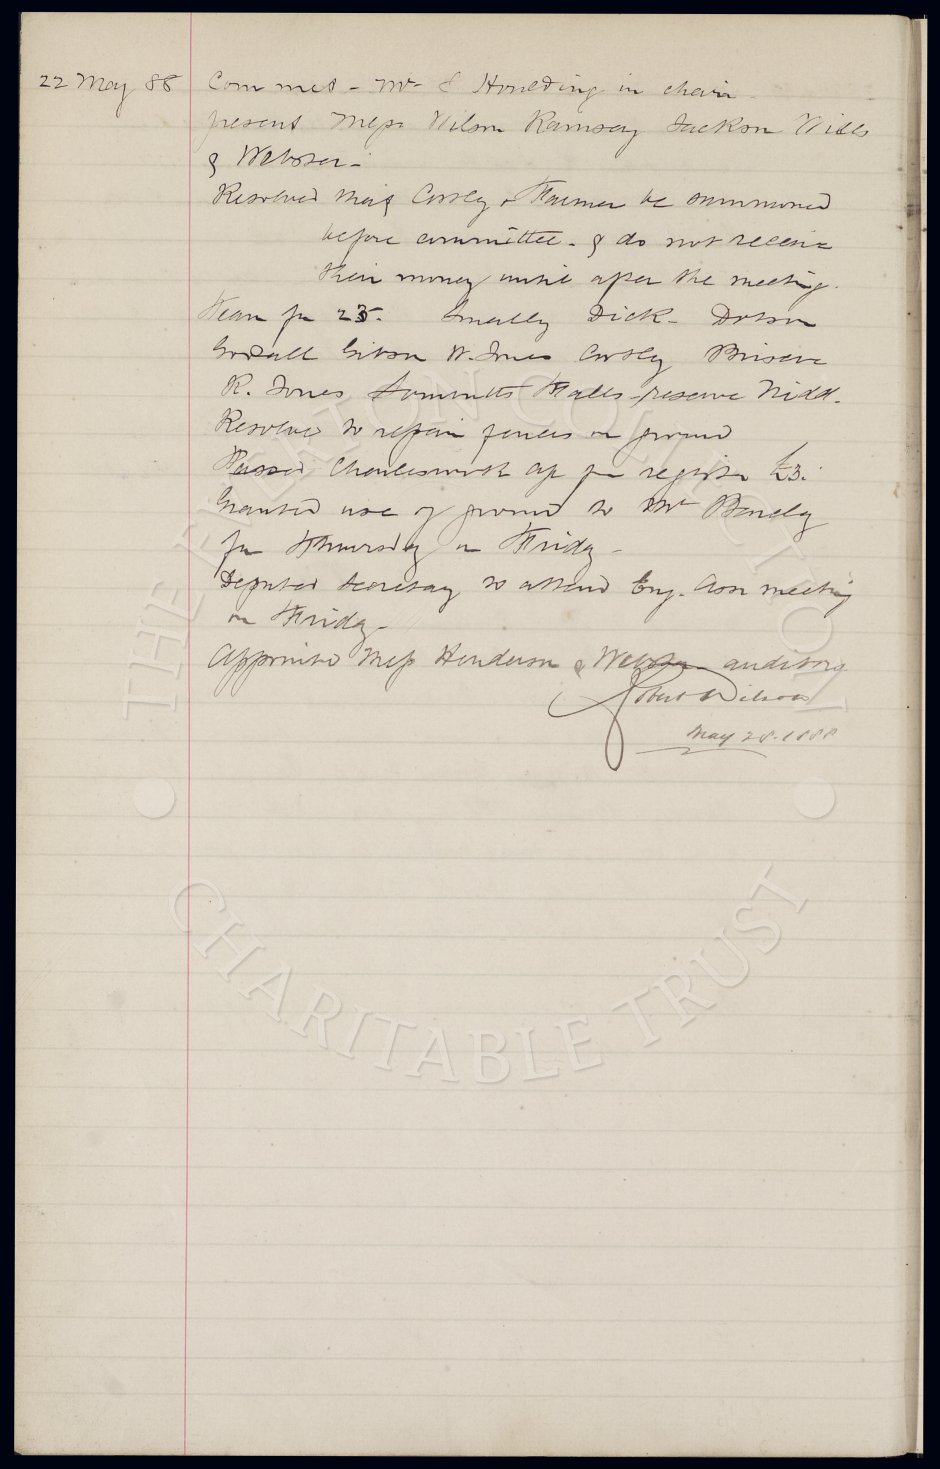 22 May 88 Com met - Mr J Houlding in chair
present Mess Wilson Ramsay Jackson Wills
& Webster -
Resolved that Corley & Farmer be summoned
before committee - & do not receive
their money until after the meeting.
Team for 25. Smalley Dick - Dobson
Godall Gibson W. Jones Corley Briscoe
R. Jones Falls reserve Nidd.
Resolved to repair fences on ground
Passed Charlesworth a/c for register £3.
Granted use of ground to Mr
for Thursday or Friday -
Deputed Secretary to attend Eng. Assn meeting
on Friday -
Appointed Mess Henderson & Webster auditors
Robert Wilson
May 28. 1888
THE EVERTON COLLECTION
CHARITABLE TRUST